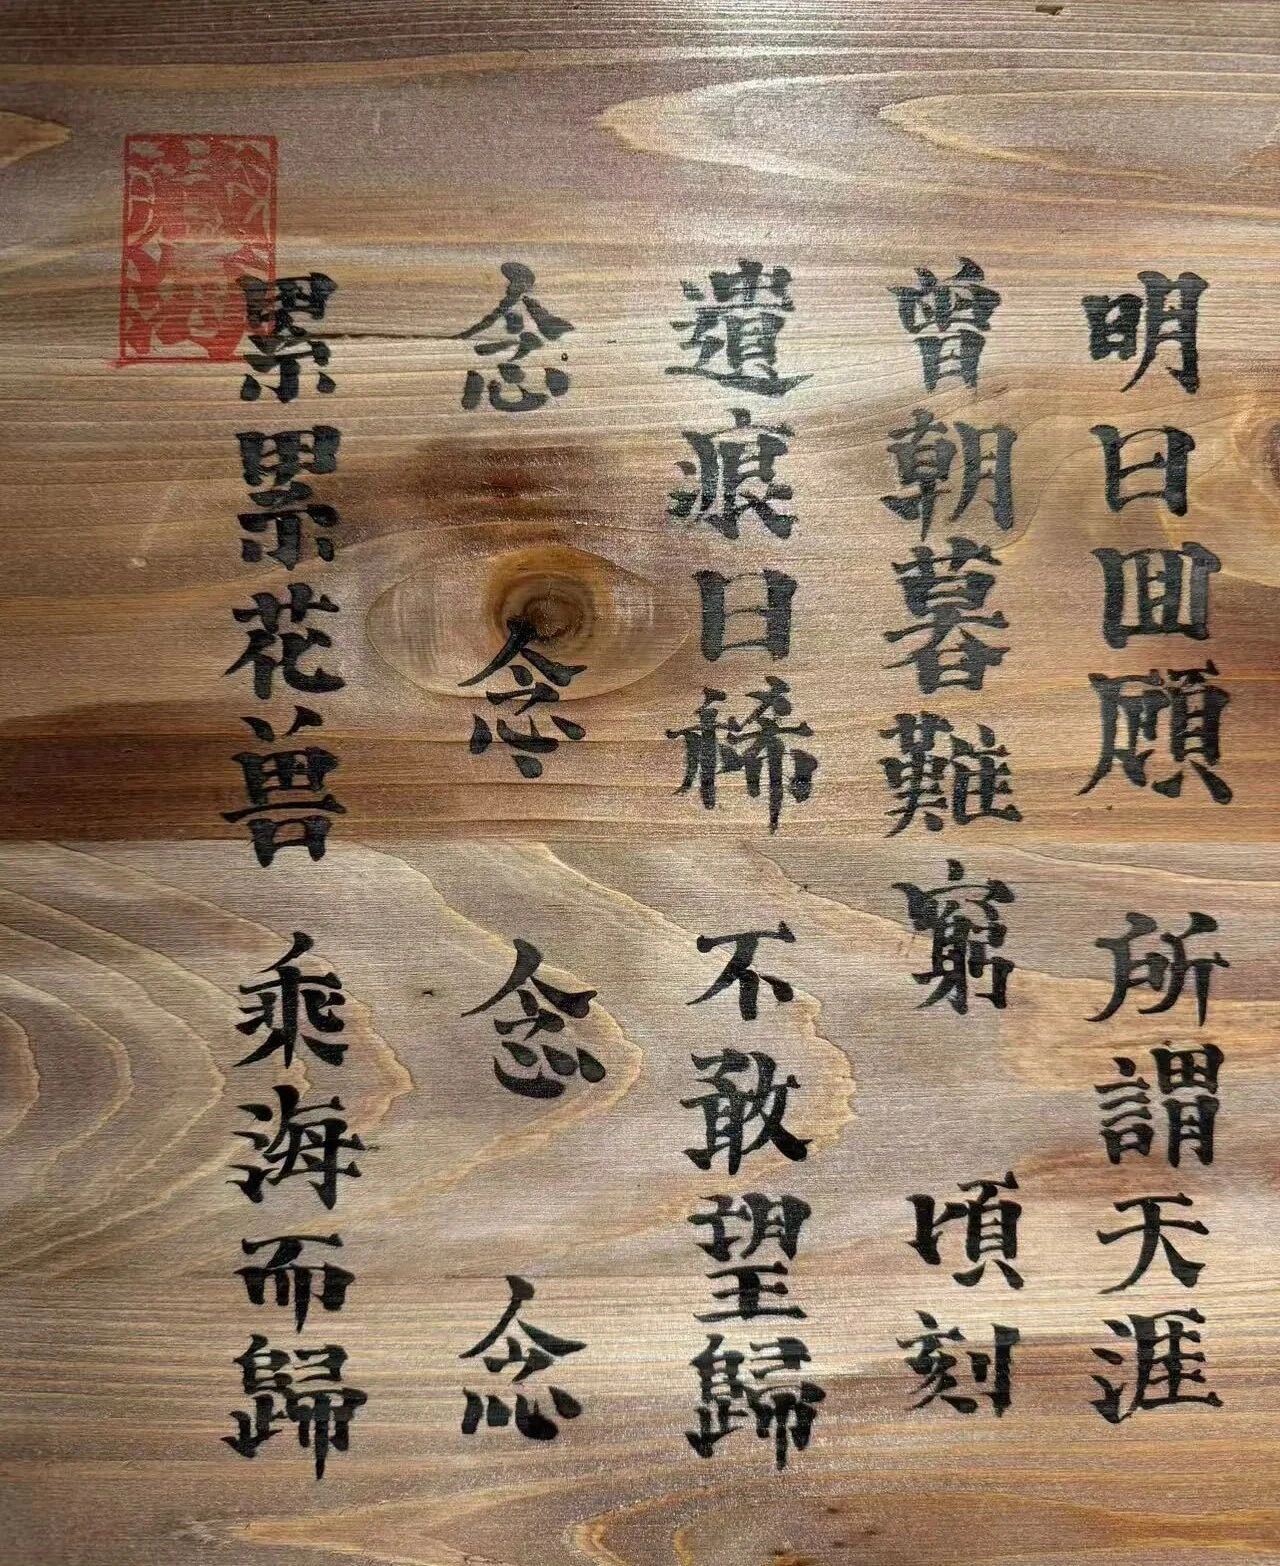 明日回顧 所謂天涯
曾朝暮難窮 頃刻
遺痕日稀 不敢望歸
念 念 念 念
累累花兽 乘海而歸